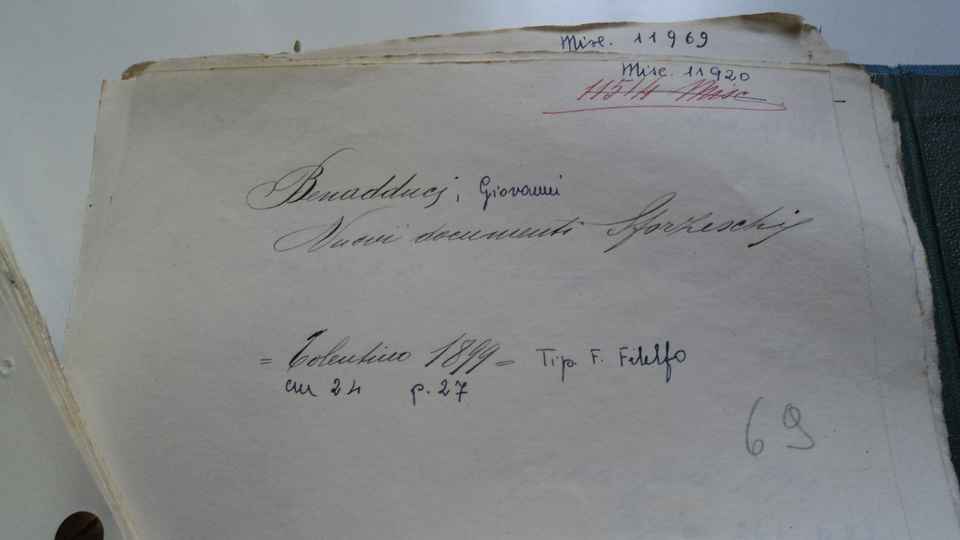 Misc. 11969
Misc. 11920
11514 Misc
Benadduci, Giovanni
Nuovi documenti Sforzeschi
= Tolentino 1899 = Tip. F. Filelfo
cm 24 p. 27
69